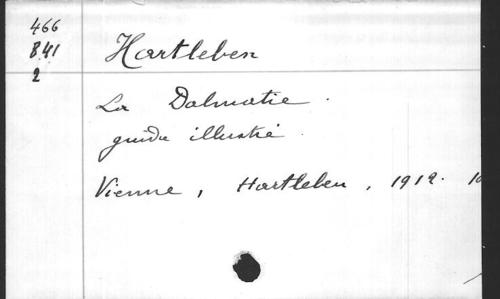 466
841
2
Hartleben
La Dalmatie.
guide illustré.
Vienne, Hartleben, 1912. 10